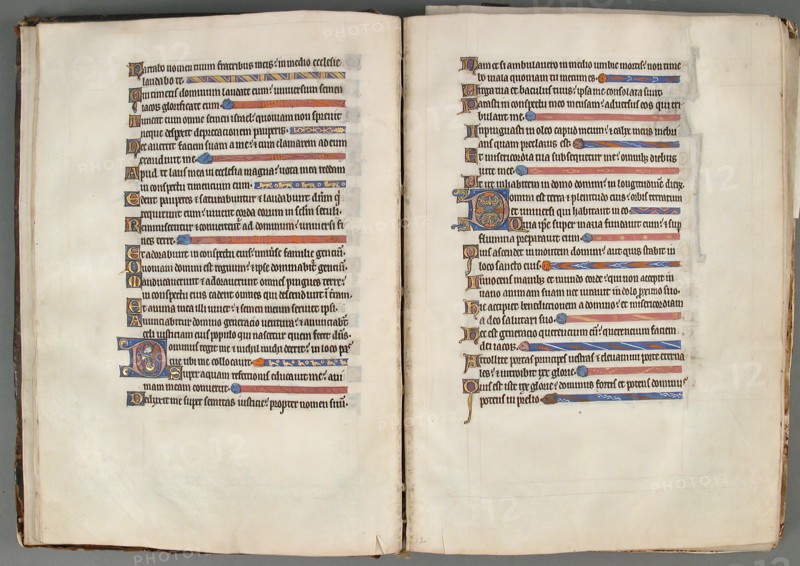 Narrabo nomen tuum fratribus meis: in medio ecclesie
laudabo te.
Qui timetis dominum laudate eum: universum semen
iacob glorificate eum.
Timeat eum omne semen israel: quoniam non sprevit
neque despexit deprecationem pauperis.
Nec avertit faciem suam a me: et cum clamarem ad eum
exaudivit me.
Apud te laus mea in ecclesia magna: vota mea reddam
in conspectu timentium eum.
Edent pauperes et saturabuntur et laudabunt dnm q
requirunt eum: vivent corda eorum in sclm seculi.
Reminiscentur et convertentur ad dominum: universi fi
nes terre.
Et adorabunt in conspectu eius: universe familie gentium.
Quoniam domini est regnum: et ipse dominabit gentium.
Manducaverunt et adoraverunt omnes pingues terre:
in conspectu eius cadent omnes qui descendunt in terram.
Et anima mea illi vivet: et semen meum serviet ipsi.
Annuntiabitur domino generatio ventura: et annuntiabt
celi iusticiam eius populo qui nascetur quem fecit dns.
Dominus regit me et nichil michi deerit: in loco pas
cue ibi me collocavit.
Super aquam refectionis educavit me: ani
mam meam convertit.
Deduxit me super semitas iusticie: propter nomen suum.
Nam et si ambulavero in medio umbre mortis: non time
bo mala quoniam tu mecum es.
Virga tua et baculus tuus: ipsa me consolata sunt.
Parasti in conspectu meo mensam: adversus eos qui tri
bulant me.
Inpinguasti in oleo caput meum: et calix meus inebri
ans quam preclarus est.
Et misericordia tua subsequetur me: omnibus diebus
vite mee.
Et ut inhabitem in domo domini: in longitudinem dierum.
Domini est terra et plenitudo eius: orbis terrarum
et universi qui habitant in eo.
Quia ipse super maria fundavit eum: et sup
flumina preparavit eum.
Quis ascendet in montem domini: aut quis stabit in
loco sancto eius.
Innocens manibus et mundo corde: qui non accepit in
vano animam suam nec iuravit in dolo proximo suo.
Hic accipiet benedictionem a domino: et misericordiam
a deo salutari suo.
Hec est generatio querentium eum: querentium faciem
dei iacob.
Attollite portas principes vestras et elevamini porte eterna
les: et introibit rex glorie.
Quis est iste rex glorie: dominus fortis et potens dominus
potens in prelio.
PHOTO12